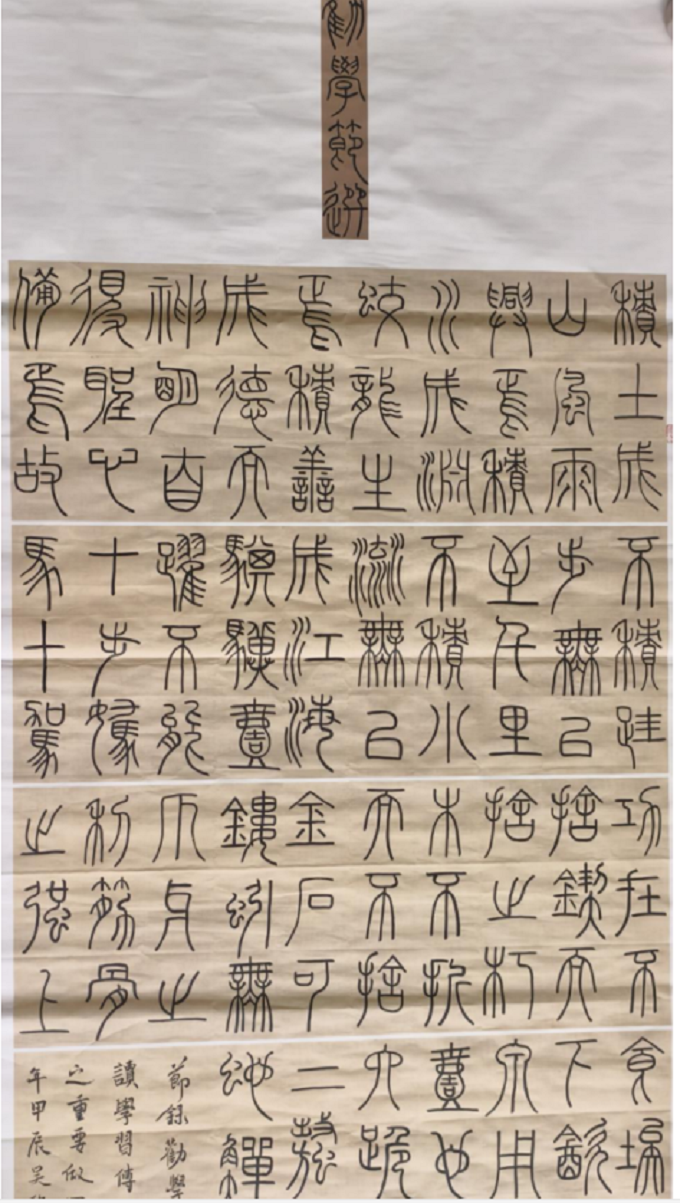 勸學節選
積土成
山風雨
興焉積
水成淵
蛟龍生
焉積善
成德而
神明自
得聖心
備焉故
不積跬
步無以
至千里
不積小
流無以
成江海
騏驥壹
躍不能
十步駑
馬十駕
功在不
捨鍥而
捨之朽
木不折
而不捨
金石可
鏤蚓無
爪牙之
利筋骨
之強上
食埃
下飲
泉用
壹也
六跪
二螯
蛇鱓
節錄勸學
讀學習傅
之重要倣
年甲辰吴